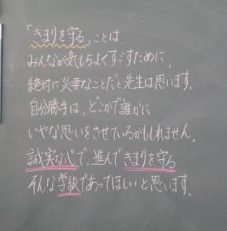 「きまりを守る」ことは、
みんなが気もちよくすごすために、
絶対に必要なことだと先生は思います。
自分勝手は、どこかで誰かに
いやな思いをさせているかもしれません。
誠実な心で、進んできまりを守る
そんな学級であってほしいと思います。